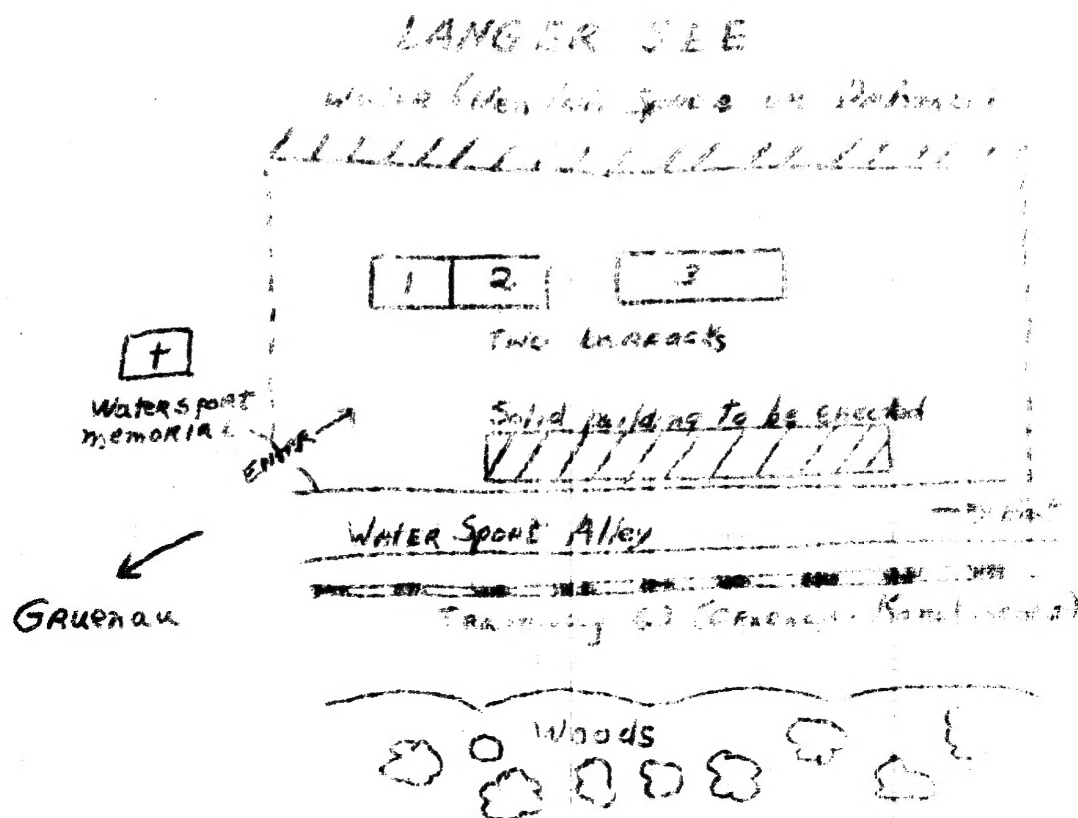 LANGER SEE
WATER
1 2 3
TWO BARRACKS
+
Watersport
MEMORIAL
ENTER
Solid building to be erected
WATER SPORT Alley
GRUENAU
TRAMWAY 62
Woods